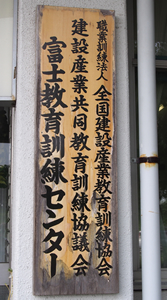 職業訓練法人 全国建設産業教育訓練協会
建設産業共同教育訓練協議会
富士教育訓練センター